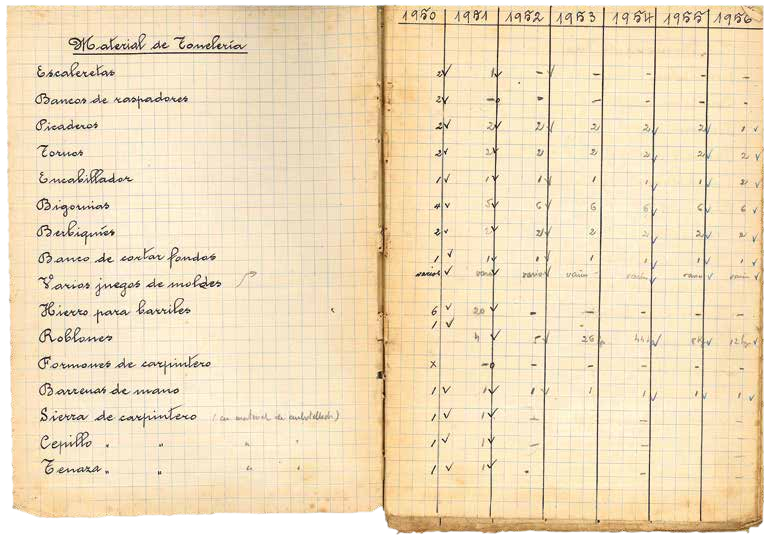 1950 1951 1952 1953 1954 1955 1956
Material de Tonelería
Escaleretas 2✓ 1✓ -✓ - - - -
Bancos de raspadores 2✓ -o - - - - -
Picaderos 2✓ 2✓ 2✓ 2 2✓ 2✓ 1✓
Tornos 2✓ 2✓ 2 2 2✓ 2✓ 2✓
Encabillador 1✓ 1✓ 1✓ 1 1✓ 1✓ 2✓
Bigornias 4✓ 5✓ 6✓ 6 6✓ 6✓ 6✓
Berbiquíes 2✓ 2✓ 2✓ 2 2✓ 2✓ 2✓
Banco de cortar fondos 1✓ 1✓ 1✓ 1 1✓ 1✓ 1✓
Varios juegos de moldes varios✓ varios✓ varios✓ varios varios✓ varios✓ varios✓
Hierro para barriles 6✓ 20 - - - - -
1✓ -
Roblones 4✓ 5✓ 26
Formones de carpintero x -o
Barrenas de mano 1✓ 1✓ 1✓ 1 1✓ 1✓ 1✓
Sierra de carpintero (en material de embotellado) 1✓ 1✓ - -
Cepillo " " " " 1✓ 1✓ - -
Tenaza " " " " 1✓ 1✓ - -